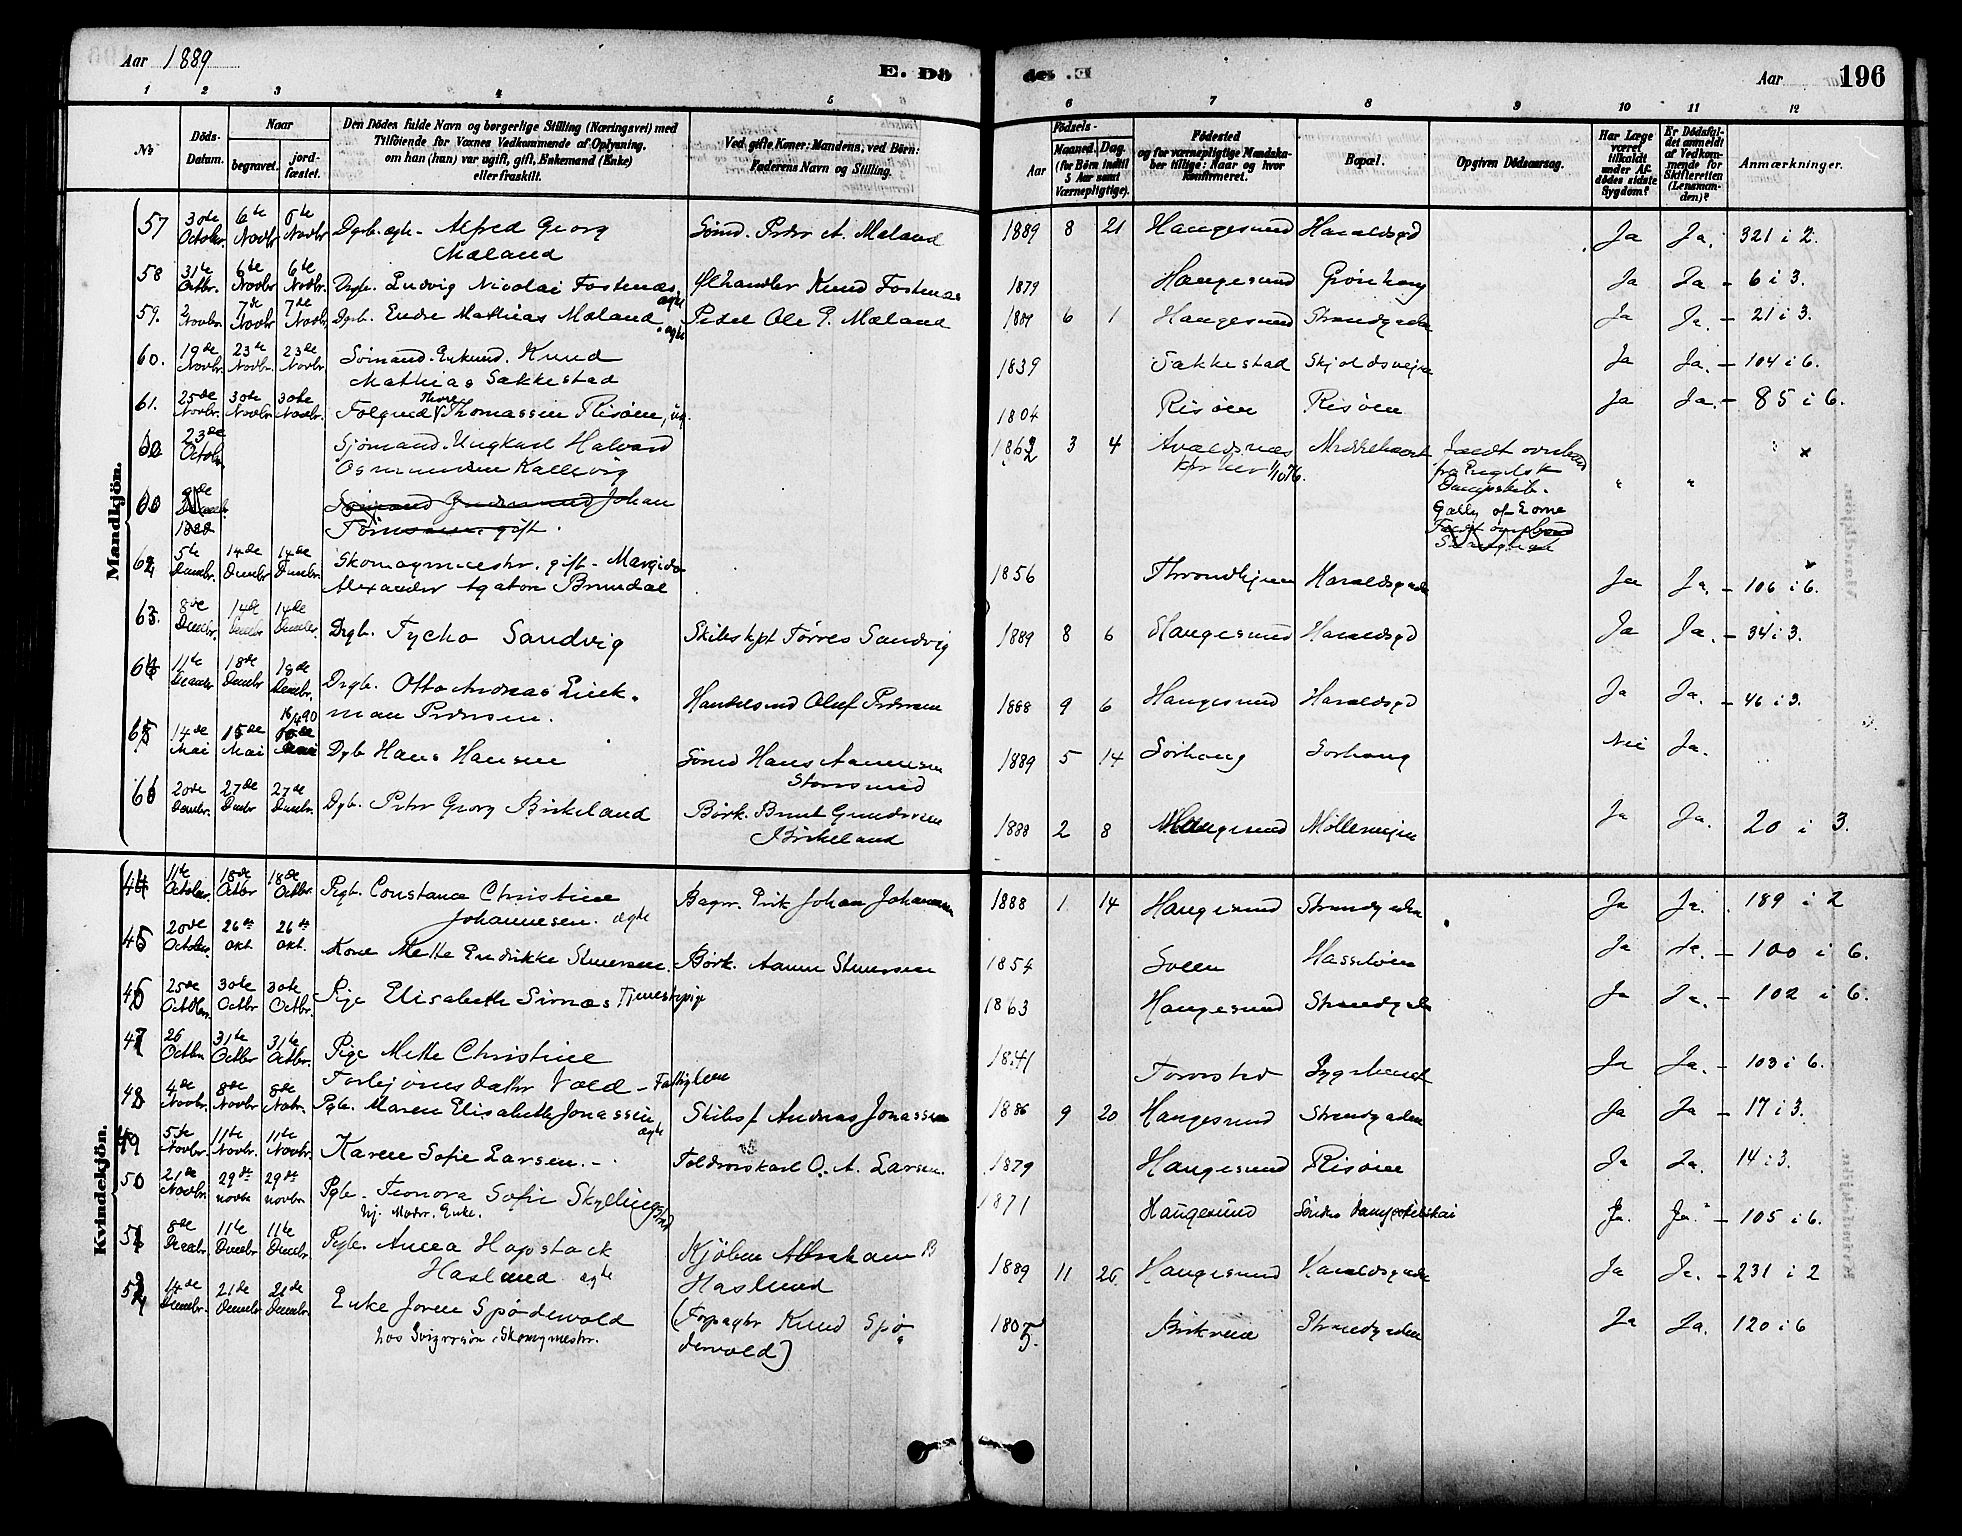 Aar 1889
E. Dö
des .E
Aar
196
1 2 3 4 5 6 7 8 9 10 11 12
No
Döds-Datum.
Naar
begravet.
jordfæstet.
Den Dödes fulde Navn og borgerlige Stilling (Næringsvei) med
Tilföiende for Voxnes Vedkommende af Oplysning,
om han (hun) var ugift, gift, Enkemand (Enke)
eller fraskilt.
Ved gifte Koner: Mandens, ved Börn:
Faderens Navn og Stilling.
Födsels-
Aar
Maaned. Dag.
(for Börn indtil
5 Aar samt
Værnepligtige).
Födested
og for værnepligtige Mandska-
ber tillige: Naar og hvor
Konfirmeret.
Bopæl.
Opgiven Dödsaarsag.
Har Læge
været
tilkaldt
under Af-
dödes sidste
Sygdom?
Er Dödsfal-
det anmeldt
af Vedkom-
mende for
Skifteretten
(Lensman-
den)?
Anmærkninger.
Mandkjön.
57 30te Octobr. 6te Novbr 6te Novbr Dgb. ægte - Alfred Georg Mæland Sømd. Peder A. Mæland 1889 8 21 Haugesund Haraldsgd Ja Ja. 321 i 2.
58 31te Octbr. 6te Novbr 6te Novbr. Drgb. Ludvig Nicolai Fostenæs, ægte Ølhandler Knud Fostenæs 1879 Haugesund Grønhaug Ja Ja - 6 i 3.
59. 2 Novbr. 7de Novbr 7de Novbr. Dgb. Endre Mathias Mæland, ægte Pedel Ole P. Mæland 1889 6 1 Haugesund Strandgaden Ja Ja. - 21 i 3.
60. 19de Novbr. 23de Novbr. 23de Novbr. Sømand. Enkemd. Knud Mathias Sakkestad 1839 Sakkestad Skjoldsvejen Ja Ja. - 104 i 6.
61. 25de Novbr. 30te Novbr. 30te Novbr. Folgemd Thore Thomassen Risøen, 1804 Risøen Risøen Ja Ja. - 85 i 6.
23de Octobr Sjømand. Ungkarl Halvard Osmundsen Kallevig 1862 3 4 Avaldsnæs Faldt overbord fra Engelsk Dampskib. " " x
Gally of Lorne
Johan gift.
62 5te Decbr. 14de Decbr 14de Decbr. Skomagermestr. gift - Alexander Agaton Brundal 1856 Throndhjem Haraldsgaden Ja Ja. - 106 i 6.
63. 8de Decbr. 14de Decbr 14de Decbr. Drgb. Tycho Sandvig Skibskpt Tørres Sandvig 1889 8 6 Haugesund Haraldsgd Ja Ja. - 34 i 3.
64 11te Decbr 18de Decbr 18de Decbr. Drgb. Otto Andreas Lindman Pedersen. Handelsmd Oluf Pedersen 1888 9 6 Haugesund Haraldsgd Ja Ja. - 46 i 3.
65 14de Mai 15de Mai 16/4 90 Dgb Hans Hansen Sømd Hans Aamunsen Storesund 1889 5 14 Sørhaug Sørhaug Nei Ja.
66 20de Decbr. 27de Decbr 27de Decbr. Dgb. Peter Georg Birkeland Børk. Bernt Gundersen Birkeland 1888 2 8 Haugesund Møllevejen Ja Ja. 20 i 3.
Kvindekjön.
44 11te Octobr. 18de Octbr 18de Octbr. Pigb. Constance Christine Johannesen. ægte Bagr. Erik Johan Johannesen 1888 1 14 Haugesund Strandgaden Ja Ja. 189 i 2
45 20de Octobr. 26de Okt. 26de Okt. Kone Mette Endrikke Steversen. Børk. Aanen Steversen 1854 Sveen Hasseløen Ja Ja. - 100 i 6.
46 25de Octobr. 30te Octbr 30te Octbr. Pige Elisabeth Sirnæs Tjenestepige 1863 Haugesund Strandgaden Ja Ja. - 102 i 6.
47 26 Octbr 31te Octbr 31te Octbr. Pige Mette Christine Torbjørnsdatter Vold - Fattiglem 1841 Tornstad Sygehuset Ja Ja. - 103 i 6.
48 4de Novbr. 8de Novbr 8de Novbr. Pgb. Maren Elisabeth Jonassen ægte Skibsf Andreas Jonassen 1886 9 20 Haugesund Strandgaden Ja Ja - 17 i 3.
49 5te Novbr. 11te Novbr. 11te Novbr. Karen Sofie Larsen. - Toldroerskarl O. A. Larsen 1879 Haugesund Risøen Ja Ja. 14 i 3.
50 21de Novbr. 29de novbr 29de novbr Pgb. Leonora Sofie Skyllingstad hj. Moder. Enke. 1871 Haugesund Søndre Dampskibskai Ja. Ja. - 105 i 6.
51 8de Decbr. 11te Decbr 11te Decbr. Pigb. Anna Hopstock Haslund ægte Kjøbm Abraham B Haslund 1889 11 26 Haugesund Haraldsgaden Ja Ja. - 231 i 2
52 14de Decbr. 21de Decbr 21de Decbr. Enke Joren Spødervold hos Svigersøn, Skomagermestr. (Forpagter Knud Spødervold) 1805. Birkeland Strandgaden Ja Ja. 120 i 6